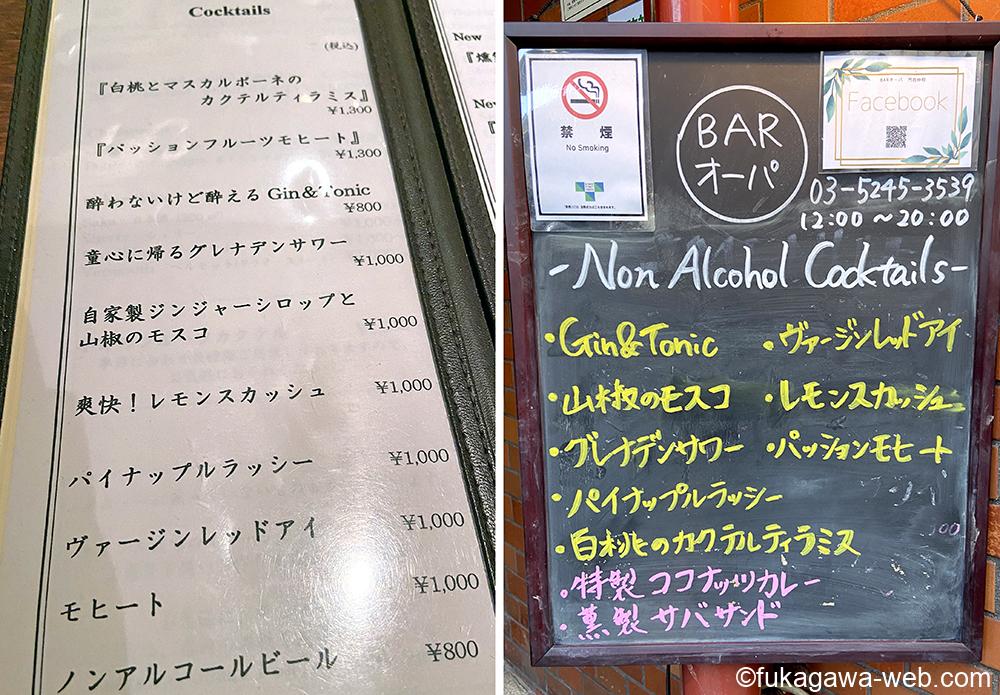 Cocktails
(税込)
『白桃とマスカルポーネの
カクテルティラミス』
¥1,300
『パッションフルーツモヒート』
¥1,300
酔わないけど酔える Gin&Tonic
¥800
童心に帰るグレナデンサワー
¥1,000
自家製ジンジャーシロップと
山椒のモスコ
¥1,000
爽快！レモンスカッシュ
¥1,000
パイナップルラッシー
¥1,000
ヴァージンレッドアイ
¥1,000
モヒート
¥1,000
ノンアルコールビール
¥800
New
『燻
New
禁煙
No Smoking
BAR
オーパ
BARオーパ 門前仲町
Facebook
03-5245-3539
12:00〜20:00
-Non Alcohol Cocktails-
・Gin&Tonic
・ヴァージンレッドアイ
・山椒のモスコ
・レモンスカッシュ
・グレナデンサワー
・パッションモヒート
・パイナップルラッシー
・白桃のカクテルティラミス
・特製ココナッツカレー
・薫製サバサンド
©fukagawa-web.com